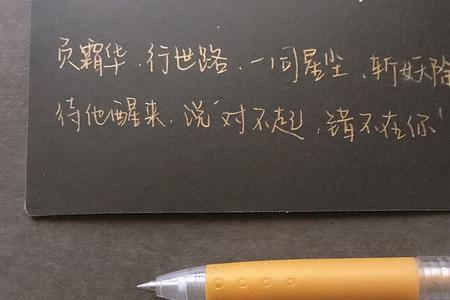 负霜华,行世路,一同星尘,斩妖除
待他醒来,说“对不起,错不在你”